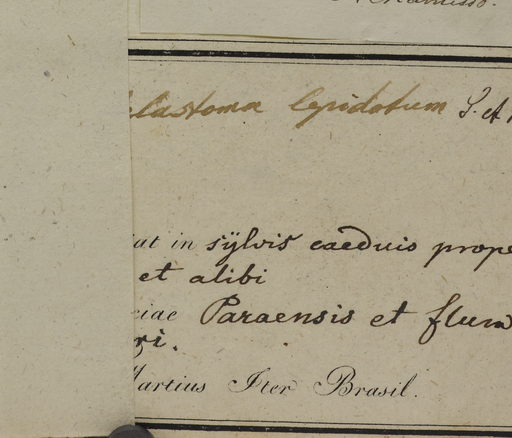 Chamisso.
lastoma lepidotum S. et
at in sylvis caeduis prope
et alibi
ciae Paraensis et flum
ri.
Martius Iter Brasil.